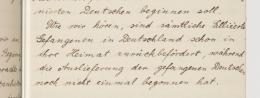 nierten Deutschen beginnen soll.
Wie wir hören, sind sämtliche Alliierte
Gefangenen in Deutschland schon in
ihre Heimat zurückbefördert, während
die Auslieferung der gefangenen Deutschen
noch nicht einmal begonnen hat.